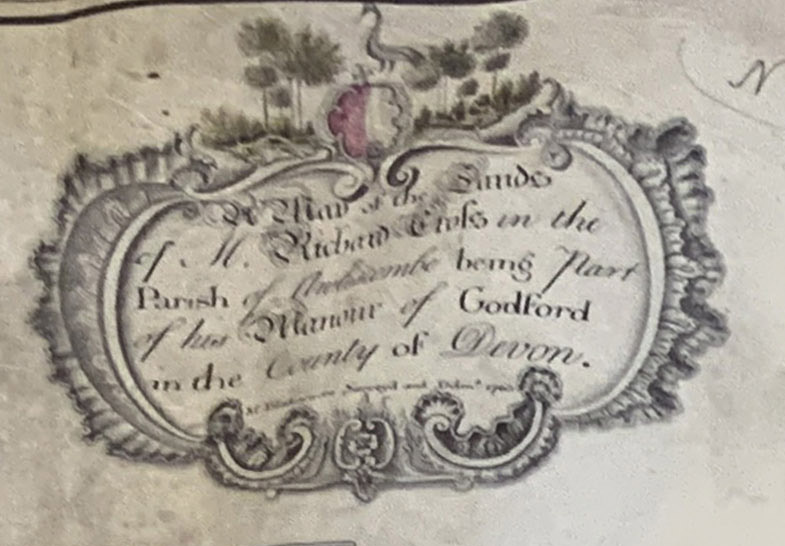 A Map of the Lands
of Mr. Richard Cross in the
Parish of Awliscombe being Part
of his Manour of Godford
in the County of Devon.
Survey'd and
N